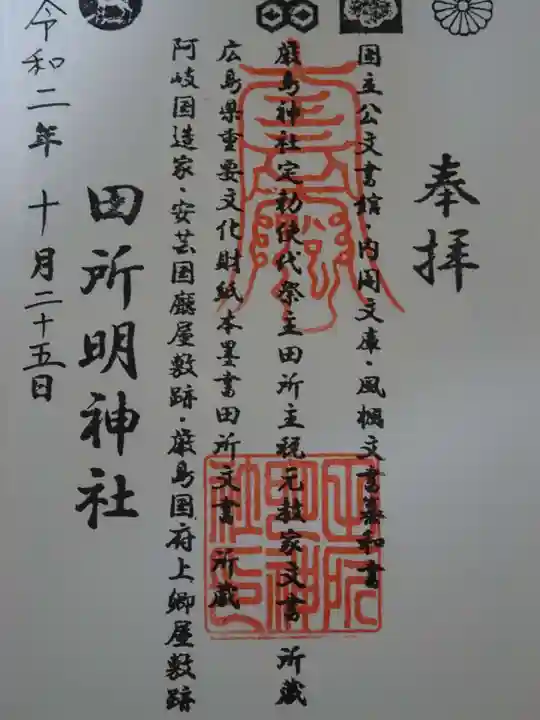 奉拝
国立公文書館・内閣文庫・風楓文書幕和書
厳島神社定初使代祭主田所主税元技家文書 所蔵
広島県重要文化財紙本墨書田所文書 所蔵
阿岐国造家・安芸国廳屋敷跡・厳島国府上卿屋敷跡
田所明神社
令和二年 十月二十五日